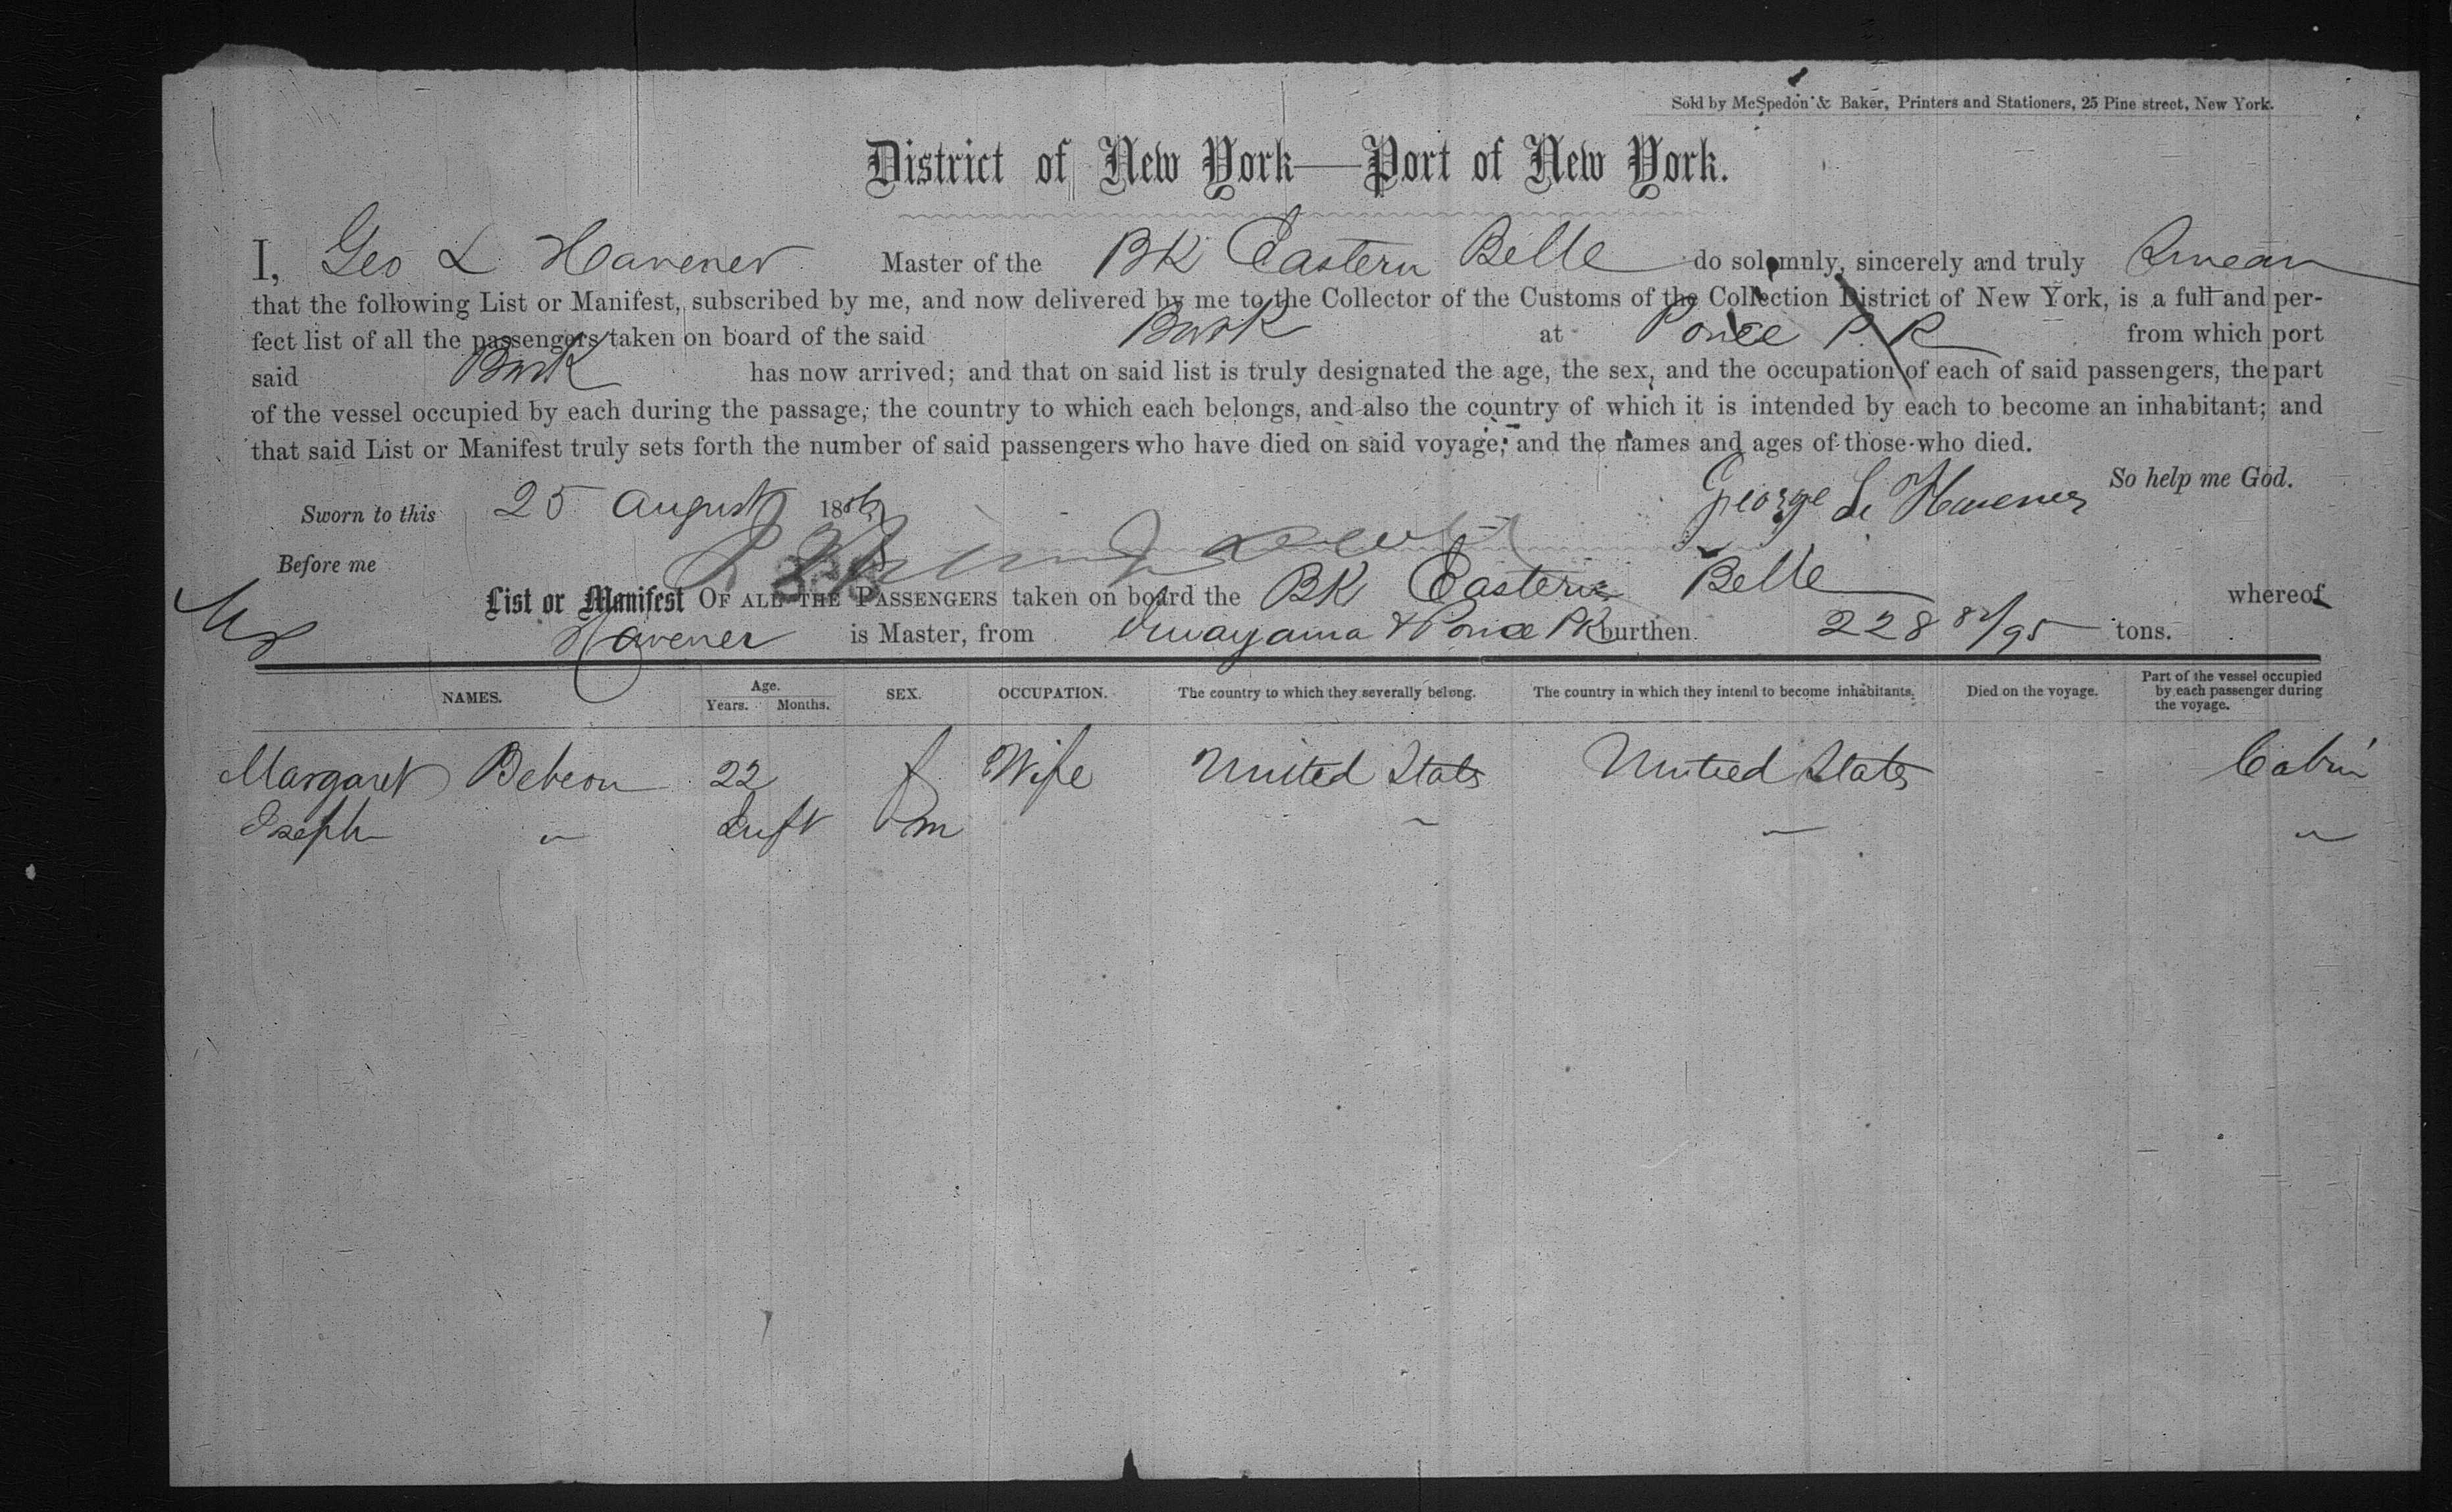 Sold by McSpedon & Baker, Printers and Stationers, 25 Pine street, New York.
District of New York—Port of New York.
I, Geo L Havener Master of the BK Eastern Belle do solemnly, sincerely and truly Swear
that the following List or Manifest, subscribed by me, and now delivered by me to the Collector of the Customs of the Collection District of New York, is a full and per-
fect list of all the passengers taken on board of the said Bark at Ponce P. R from which port
said Bark has now arrived; and that on said list is truly designated the age, the sex, and the occupation of each of said passengers, the part
of the vessel occupied by each during the passage, the country to which each belongs, and also the country of which it is intended by each to become an inhabitant; and
that said List or Manifest truly sets forth the number of said passengers who have died on said voyage, and the names and ages of those who died.
So help me God.
Sworn to this 25 August 18 George L Havener
Before me
List or Manifest OF ALL THE PASSENGERS taken on board the BK Eastern Belle whereof
Havener is Master, from & Ponce PR burthen 228 82/95 tons.
NAMES. Age. Years. Months. SEX. OCCUPATION. The country to which they severally belong. The country in which they intend to become inhabitants. Died on the voyage. Part of the vessel occupied by each passenger during the voyage.
Margaret 22 f Wife United States United States Cabin
Joseph " Inft m " " "